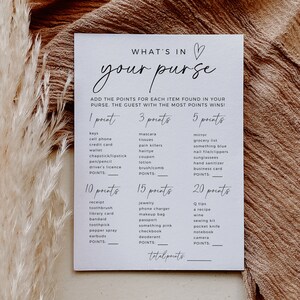 WHAT'S IN
your purse
ADD THE POINTS FOR EACH ITEM FOUND IN YOUR
PURSE. THE GUEST WITH THE MOST POINTS WINS!
1 point
keys
cell phone
credit card
wallet
chapstick/lipstick
pen/pencil
driver's licence
POINTS:
3 points
mascara
tissues
pain killers
hairtye
coupon
lotion
brush/comb
POINTS:
5 points
mirror
grocery list
something blue
nail file/clippers
sunglasses
hand sanitiser
business card
POINTS:
10 points
receipt
toothbrush
library card
bandaid
toothpick
pepper spray
earbuds
POINTS:
15 points
jewelry
phone charger
makeup bag
passport
something pink
checkbook
deodorant
POINTS:
20 points
a recipe
wine
sewing kit
pocket knife
notebook
camera
POINTS:
total points